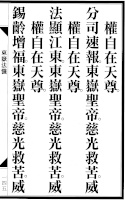 分司速報東嶽聖帝。慈光救苦。威
權自在天尊
權自在天尊
法顯江東。東嶽聖帝。慈光救苦。威
權自在天尊
錫齡增福。東嶽聖帝。慈光救苦。威
東嶽法懺